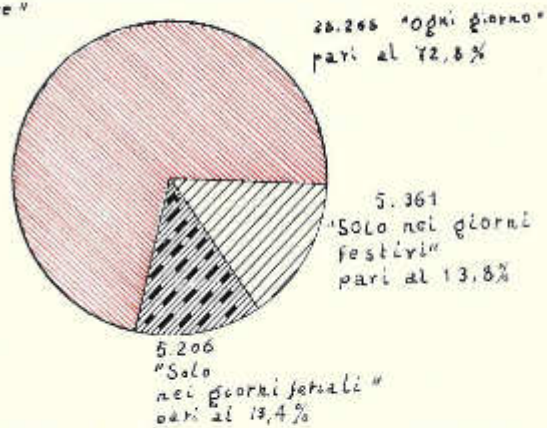 e"
"ogni giorno"
pari al 72,8%
5.361
"Solo nei giorni
festivi"
pari al 13,8%
5.206
"Solo
nei giorni feriali"
pari al 13,4%